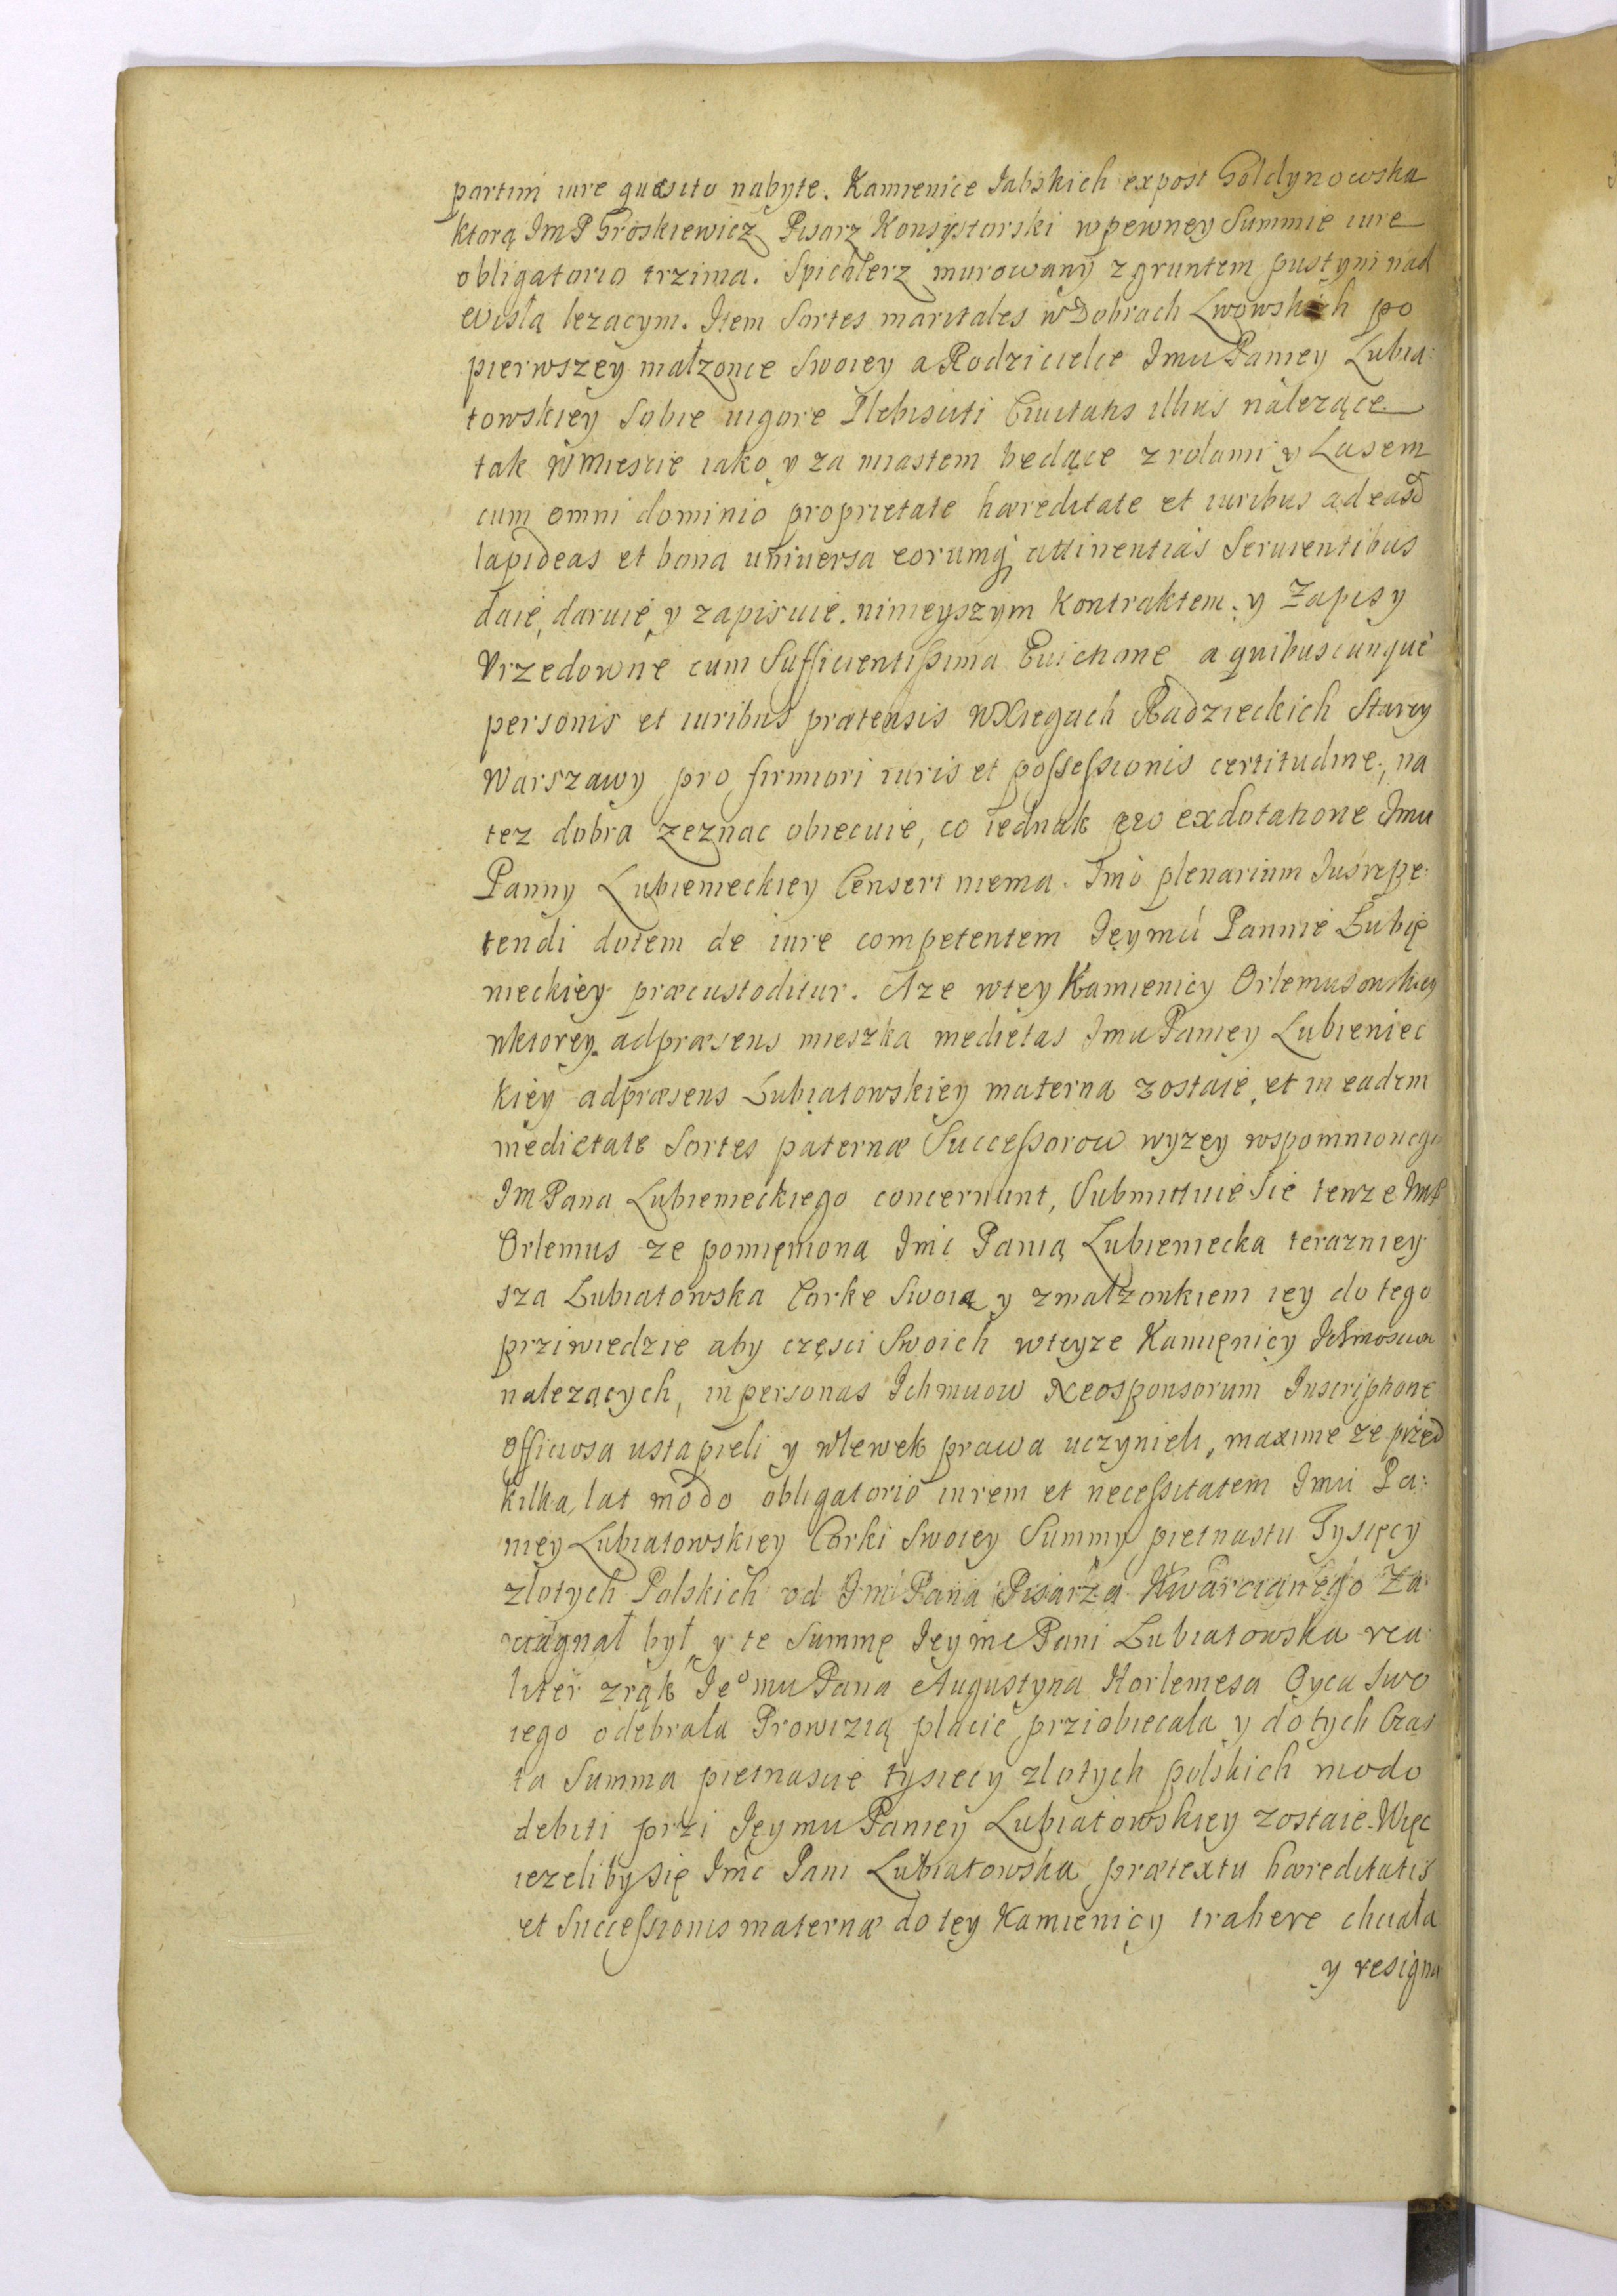 partim iure quæsito nabyte. Kamienice Jabskich expost Goldynowska
ktorą Im P Groskiewicz Pisarz Konsystorski w pewney Summie iure
obligatorio trzima. Spichlerz murowany z gruntem pustym nad
Wisłą lezacym. Item Sortes maritales w Dobrach Lwowskich po
pierwszey małzonce Swoiey a Rodzicielce Imu Paniey Lubia:
towskiey Sobie uigore Plebisciti Ciuitatis illius nalezące
tak w Miescie iako y za miastem będące z rolami y Lasem
cum omni dominio proprietate hæreditate et iuribus ad easd
lapideas et bona uniuersa eorumq attinentias Seruientibus
daie, daruie y zapisuie. ninieyszym Kontraktem. y Zapisy
Vrzedowne cum Sufficientissima Euictione a quibuscunque
personis et iuribus prætensis w Xięgach Radzieckich Starey
Warszawy pro firmiori iuris et possessionis certitudine, na
tez dobra zeznac obiecuie, co iednak pro exdotatione Imu
Panny Lubienieckiey Censeri niema. Imo plenarium Ius repe:
tendi dotem de iure competentem Jeymu Pannie Lubie
nieckiey præcustoditur. Aze w tey Kamienicy Orlemusowskiey
w ktorey adpræsens mieszka medietas Imu Paniey Lubieniec
kiey adpræsens Lubiatowskiey materna zostaie, et in eadem
medietate Sortes paternæ Successorow wyzey wspomnionego
Im Pana Lubienieckiego concernunt, Submittuie Sie tenze ImP
Orlemus ze pomięnioną Imc Panią Lubieniecka terazniey
sza Lubiatowska Corke Swoią y z małzonkiem iey do tego
prziwiedzie aby częsci Swoich w teyze Kamięnicy Ichmosciom
nalezących, in personas Ichmciow Neosponsorum Inscriptione
Officiosa ustapieli y wlewek prawa uczynieli, maxime ze przed
kilka, lat modo obligatorio in rem et necessitatem Imu Pa:
niey Lubiatowskiey Corki Swoiey Summy pietnastu Tysięcy
złotych Polskich od Im Pana Pisarza Kwarcianego Za
ciągnał był, y te Summę Jeymc Pani Lubiatowska rea
liter z rąk Jeo mu Pana Augustyna Horlemesa Oyca Swo
iego odebrała Prowizią placic, przi obiecała y do tych Czas
ta Summa pietnascie tysiecy zlotych polskich modo
debiti przi Jeymu Paniey Lubiatowskiey zostaie. Więc
iezeliby się Imc Pani Lubiatowska prætextu hæreditatis
et Successionis maternæ do tey Kamienicy trahere chciała
y resigna